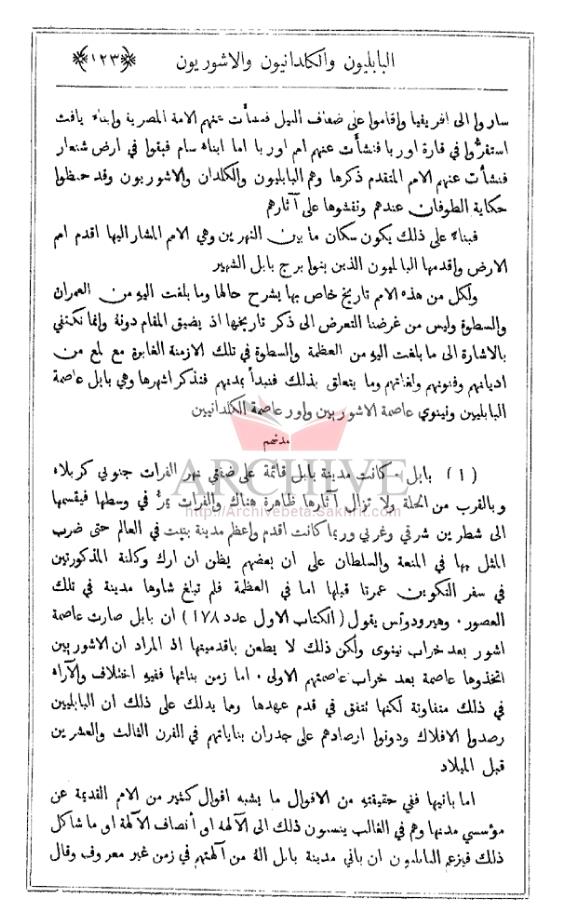 البابليون والكلدانيون والاشوريون ﴿١٢٣﴾
ساروا الى افريقيا واقاموا على ضفاف النيل فنشأت عنهم الامة المصرية وابناء يافث
استقروا في قارة اوربا فنشأت عنهم امم اوربا اما ابناء سام فبقوا في ارض شنعار
فنشأت عنهم الامم المتقدم ذكرها وهم البابليون والكلدان والاشوريون وقد حفظوا
حكاية الطوفان عندهم ونقشوها على آثارهم
فبناء على ذلك يكون سكان ما بين النهرين وهي الامم المشار اليها اقدم امم
الارض واقدمها البابليون الذين بنوا برج بابل الشهير
ولكل من هذه الامم تاريخ خاص بها يشرح حالها وما بلغت اليه من العمران
والسطوة وليس من غرضنا التعرض الى ذكر تاريخها اذ يضيق المقام دونه وانما نكتفي
بالاشارة الى ما بلغت اليه من العظمة والسطوة في تلك الازمنة الغابرة مع لمع من
اديانهم وفنونهم ولغاتهم وما يتعلق بذلك فنبدأ بمدنهم فنذكر اشهرها وهي بابل عاصمة
البابليين ونينوي عاصمة الاشوريين واور عاصمة الكلدانيين
مدنهم
ARCHIVE
http://Archivebeta.Sakhrit.com
(١) بابل كانت مدينة بابل قائمة على ضفتي نهر الفرات جنوبي كربلاء
وبالقرب من الحلة ولا تزال آثارها ظاهرة هناك والفرات يمرّ في وسطها فيقسمها
الى شطرين شرقي وغربي وربما كانت اقدم واعظم مدينة بنيت في العالم حتى ضرب
المثل بها في المنعة والسلطان على ان بعضهم يظن ان ارك وكلنة المذكورتين
في سفر التكوين عمرتا قبلها اما في العظمة فلم تبلغ شاوها مدينة في تلك
العصور. وهيرودوتس يقول (الكتاب الاول عدد ١٧٨) ان بابل صارت عاصمة
اشور بعد خراب نينوى ولكن ذلك لا يطعن باقدميتها اذ المراد ان الاشوريين
اتخذوها عاصمة بعد خراب عاصمتهم الاولى. اما زمن بنائها ففيه اختلاف والآراء
في ذلك متفاوتة لكنها تتفق في قدم عهدها ومما يدلك على ذلك ان البابليين
رصدوا الافلاك ودونوا ارصادهم على جدران بناياتهم في القرن الثالث والعشرين
قبل الميلاد
اما بانيها ففي حقيقته من الاقوال ما يشبه اقوال كثير من الامم القديمة عن
مؤسسي مدنها وهم في الغالب ينسبون ذلك الى الآلهة او أنصاف الآلهة او ما شاكل
ذلك فيزعم البابليون ان باني مدينة بابل اله من آلهتهم في زمن غير معروف وقال